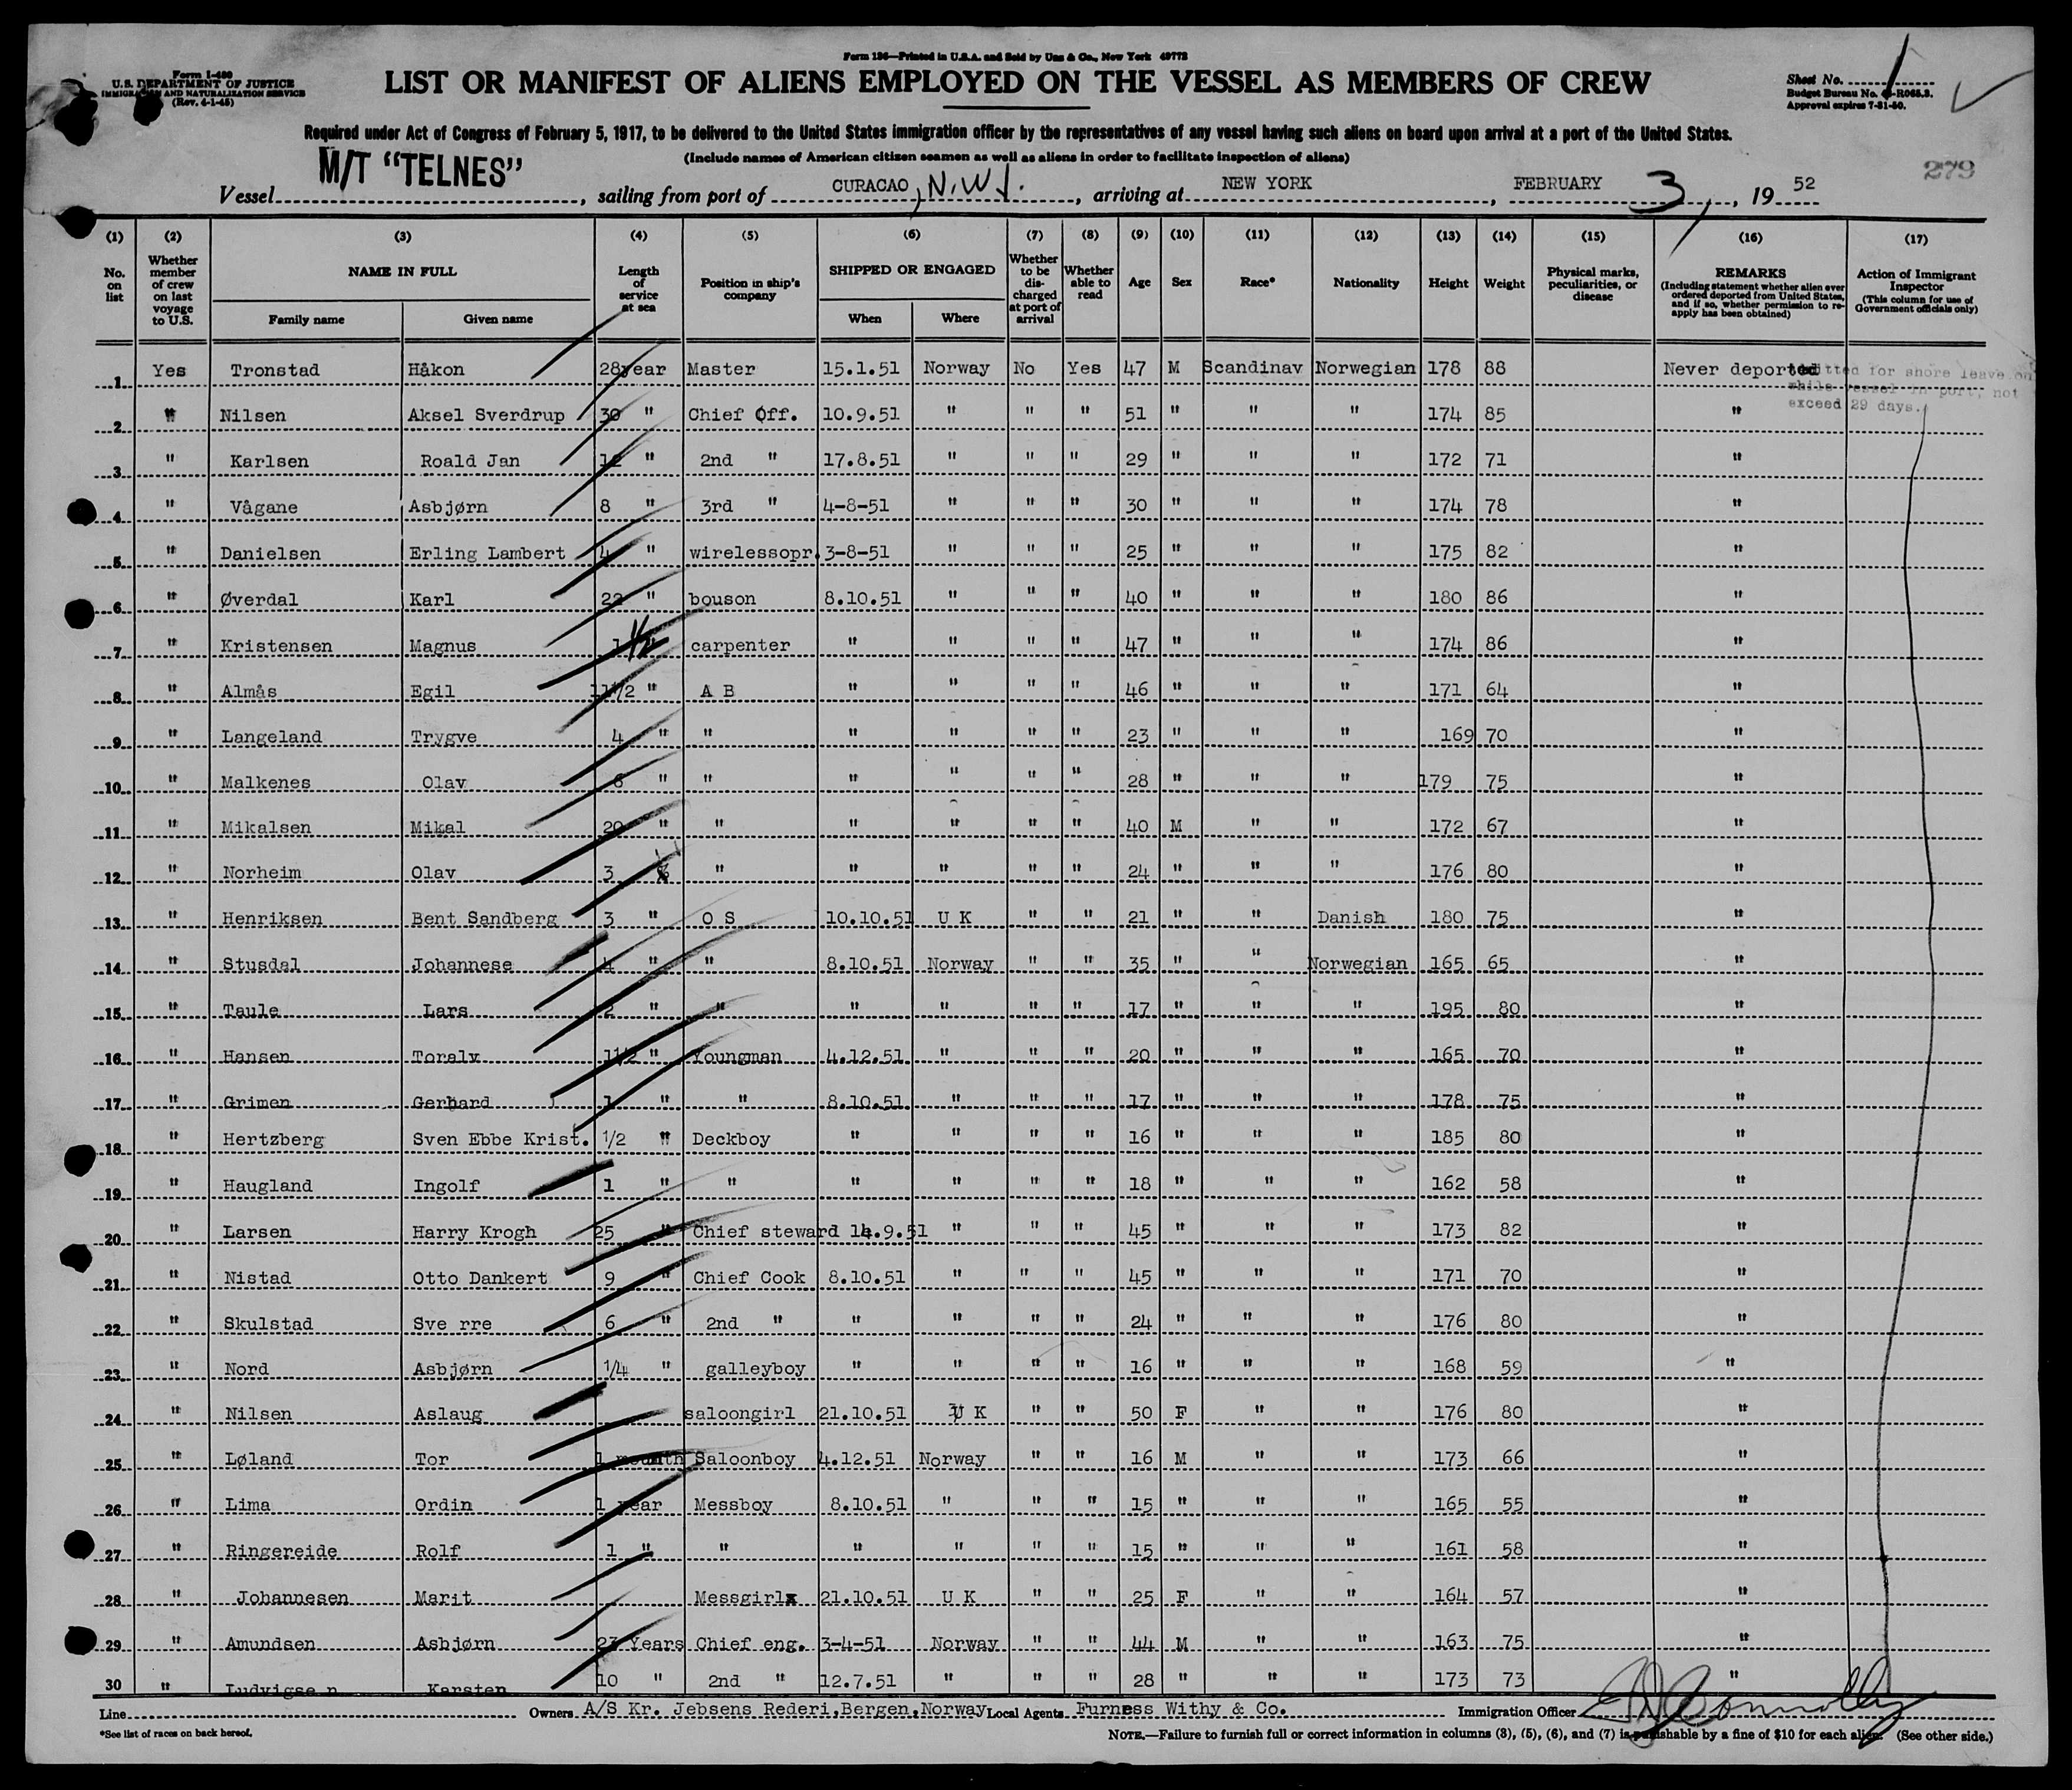 Form 126—Printed in U.S.A. and Sold by Unz & Co., New York 49772
Form I-480
U.S. DEPARTMENT OF JUSTICE
IMMIGRATION AND NATURALIZATION SERVICE
(Rev. 4-1-45)
LIST OR MANIFEST OF ALIENS EMPLOYED ON THE VESSEL AS MEMBERS OF CREW
Sheet No. 1
Budget Bureau No. -R065.3.
Approval expires 7-31-50.
Required under Act of Congress of February 5, 1917, to be delivered to the United States immigration officer by the representatives of any vessel having such aliens on board upon arrival at a port of the United States.
(Include names of American citizen seamen as well as aliens in order to facilitate inspection of aliens)
279
Vessel M/T "TELNES", sailing from port of CURACAO, N.W.I., arriving at NEW YORK, FEBRUARY 3, 1952
(1) (2) (3) (4) (5) (6) (7) (8) (9) (10) (11) (12) (13) (14) (15) (16) (17)
No. on list
Whether member of crew on last voyage to U.S.
NAME IN FULL
Family name Given name
Length of service at sea
Position in ship's company
SHIPPED OR ENGAGED
When Where
Whether to be discharged at port of arrival
Whether able to read
Age Sex Race* Nationality Height Weight
Physical marks, peculiarities, or disease
REMARKS
(Including statement whether alien ever ordered deported from United States, and if so, whether permission to re-apply has been obtained)
Action of Immigrant Inspector
(This column for use of Government officials only)
1 Yes Tronstad Håkon 28year Master 15.1.51 Norway No Yes 47 M Scandinav Norwegian 178 88 Never deported
for shore leave on
while vessel in port, not
exceed 29 days.
2 " Nilsen Aksel Sverdrup 30 " Chief Off. 10.9.51 " " " 51 " " " 174 85 "
3 " Karlsen Roald Jan 12 " 2nd " 17.8.51 " " " 29 " " " 172 71 "
4 " Vågane Asbjørn 8 " 3rd " 4-8-51 " " " 30 " " " 174 78 "
5 " Danielsen Erling Lambert 4 " wirelessopr. 3-8-51 " " " 25 " " " 175 82 "
6 " Øverdal Karl 22 " bouson 8.10.51 " " " 40 " " " 180 86 "
7 " Kristensen Magnus 1/2 " carpenter " " " " 47 " " " 174 86 "
8 " Almås Egil 11/2 " A B " " " " 46 " " " 171 64 "
9 " Langeland Trygve 4 " " " " " " 23 " " " 169 70 "
10 " Malkenes Olav 6 " " " " " " 28 " " " 179 75 "
11 " Mikalsen Mikal 20 " " " " " " 40 M " " 172 67 "
12 " Norheim Olav 3 " " " " " 24 " " " 176 80 "
13 " Henriksen Bent Sandberg 3 " O S 10.10.51 U K " " 21 " " Danish 180 75 "
14 " Stusdal Johannese 4 " " 8.10.51 Norway " " 35 " " Norwegian 165 65 "
15 " Taule Lars 2 " " " " " " 17 " " " 195 80 "
16 " Hansen Toralv 11/2 " Youngman 4.12.51 " " " 20 " " " 165 70 "
17 " Grimen Gerhard 1 " " 8.10.51 " " " 17 " " " 178 75 "
18 " Hertzberg Sven Ebbe Krist. 1/2 " Deckboy " " " " 16 " " " 185 80 "
19 " Haugland Ingolf 1 " " " " " " 18 " " " 162 58 "
20 " Larsen Harry Krogh 25 " Chief steward 14.9.51 " " " 45 " " " 173 82 "
21 " Nistad Otto Dankert 9 " Chief Cook 8.10.51 " " " 45 " " " 171 70 "
22 " Skulstad Sve rre 6 " 2nd " " " " " 24 " " " 176 80 "
23 " Nord Asbjørn 1/4 " galleyboy " " " " 16 " " " 168 59 "
24 " Nilsen Aslaug saloongirl 21.10.51 U K " " 50 F " " 176 80 "
25 " Løland Tor 1 mounth Saloonboy 4.12.51 Norway " " 16 M " " 173 66 "
26 " Lima Ordin 1 year Messboy 8.10.51 " " " 15 " " " 165 55 "
27 " Ringereide Rolf 1 " " " " " " 15 " " " 161 58 "
28 " Johannesen Marit Messgirl 21.10.51 U K " " 25 F " " 164 57 "
29 " Amundsen Asbjørn 23 Years Chief eng. 3-4-51 Norway " " 44 M " " 163 75 "
30 " Ludvigse n Karsten 10 " 2nd " 12.7.51 " " " 28 " " " 173 73 "
Line Owners A/S Kr. Jebsens Rederi, Bergen, Norway Local Agents Furness Withy & Co. Immigration Officer Connolly
*See list of races on back hereof.
NOTE.—Failure to furnish full or correct information in columns (3), (5), (6), and (7) is punishable by a fine of $10 for each alien. (See other side.)